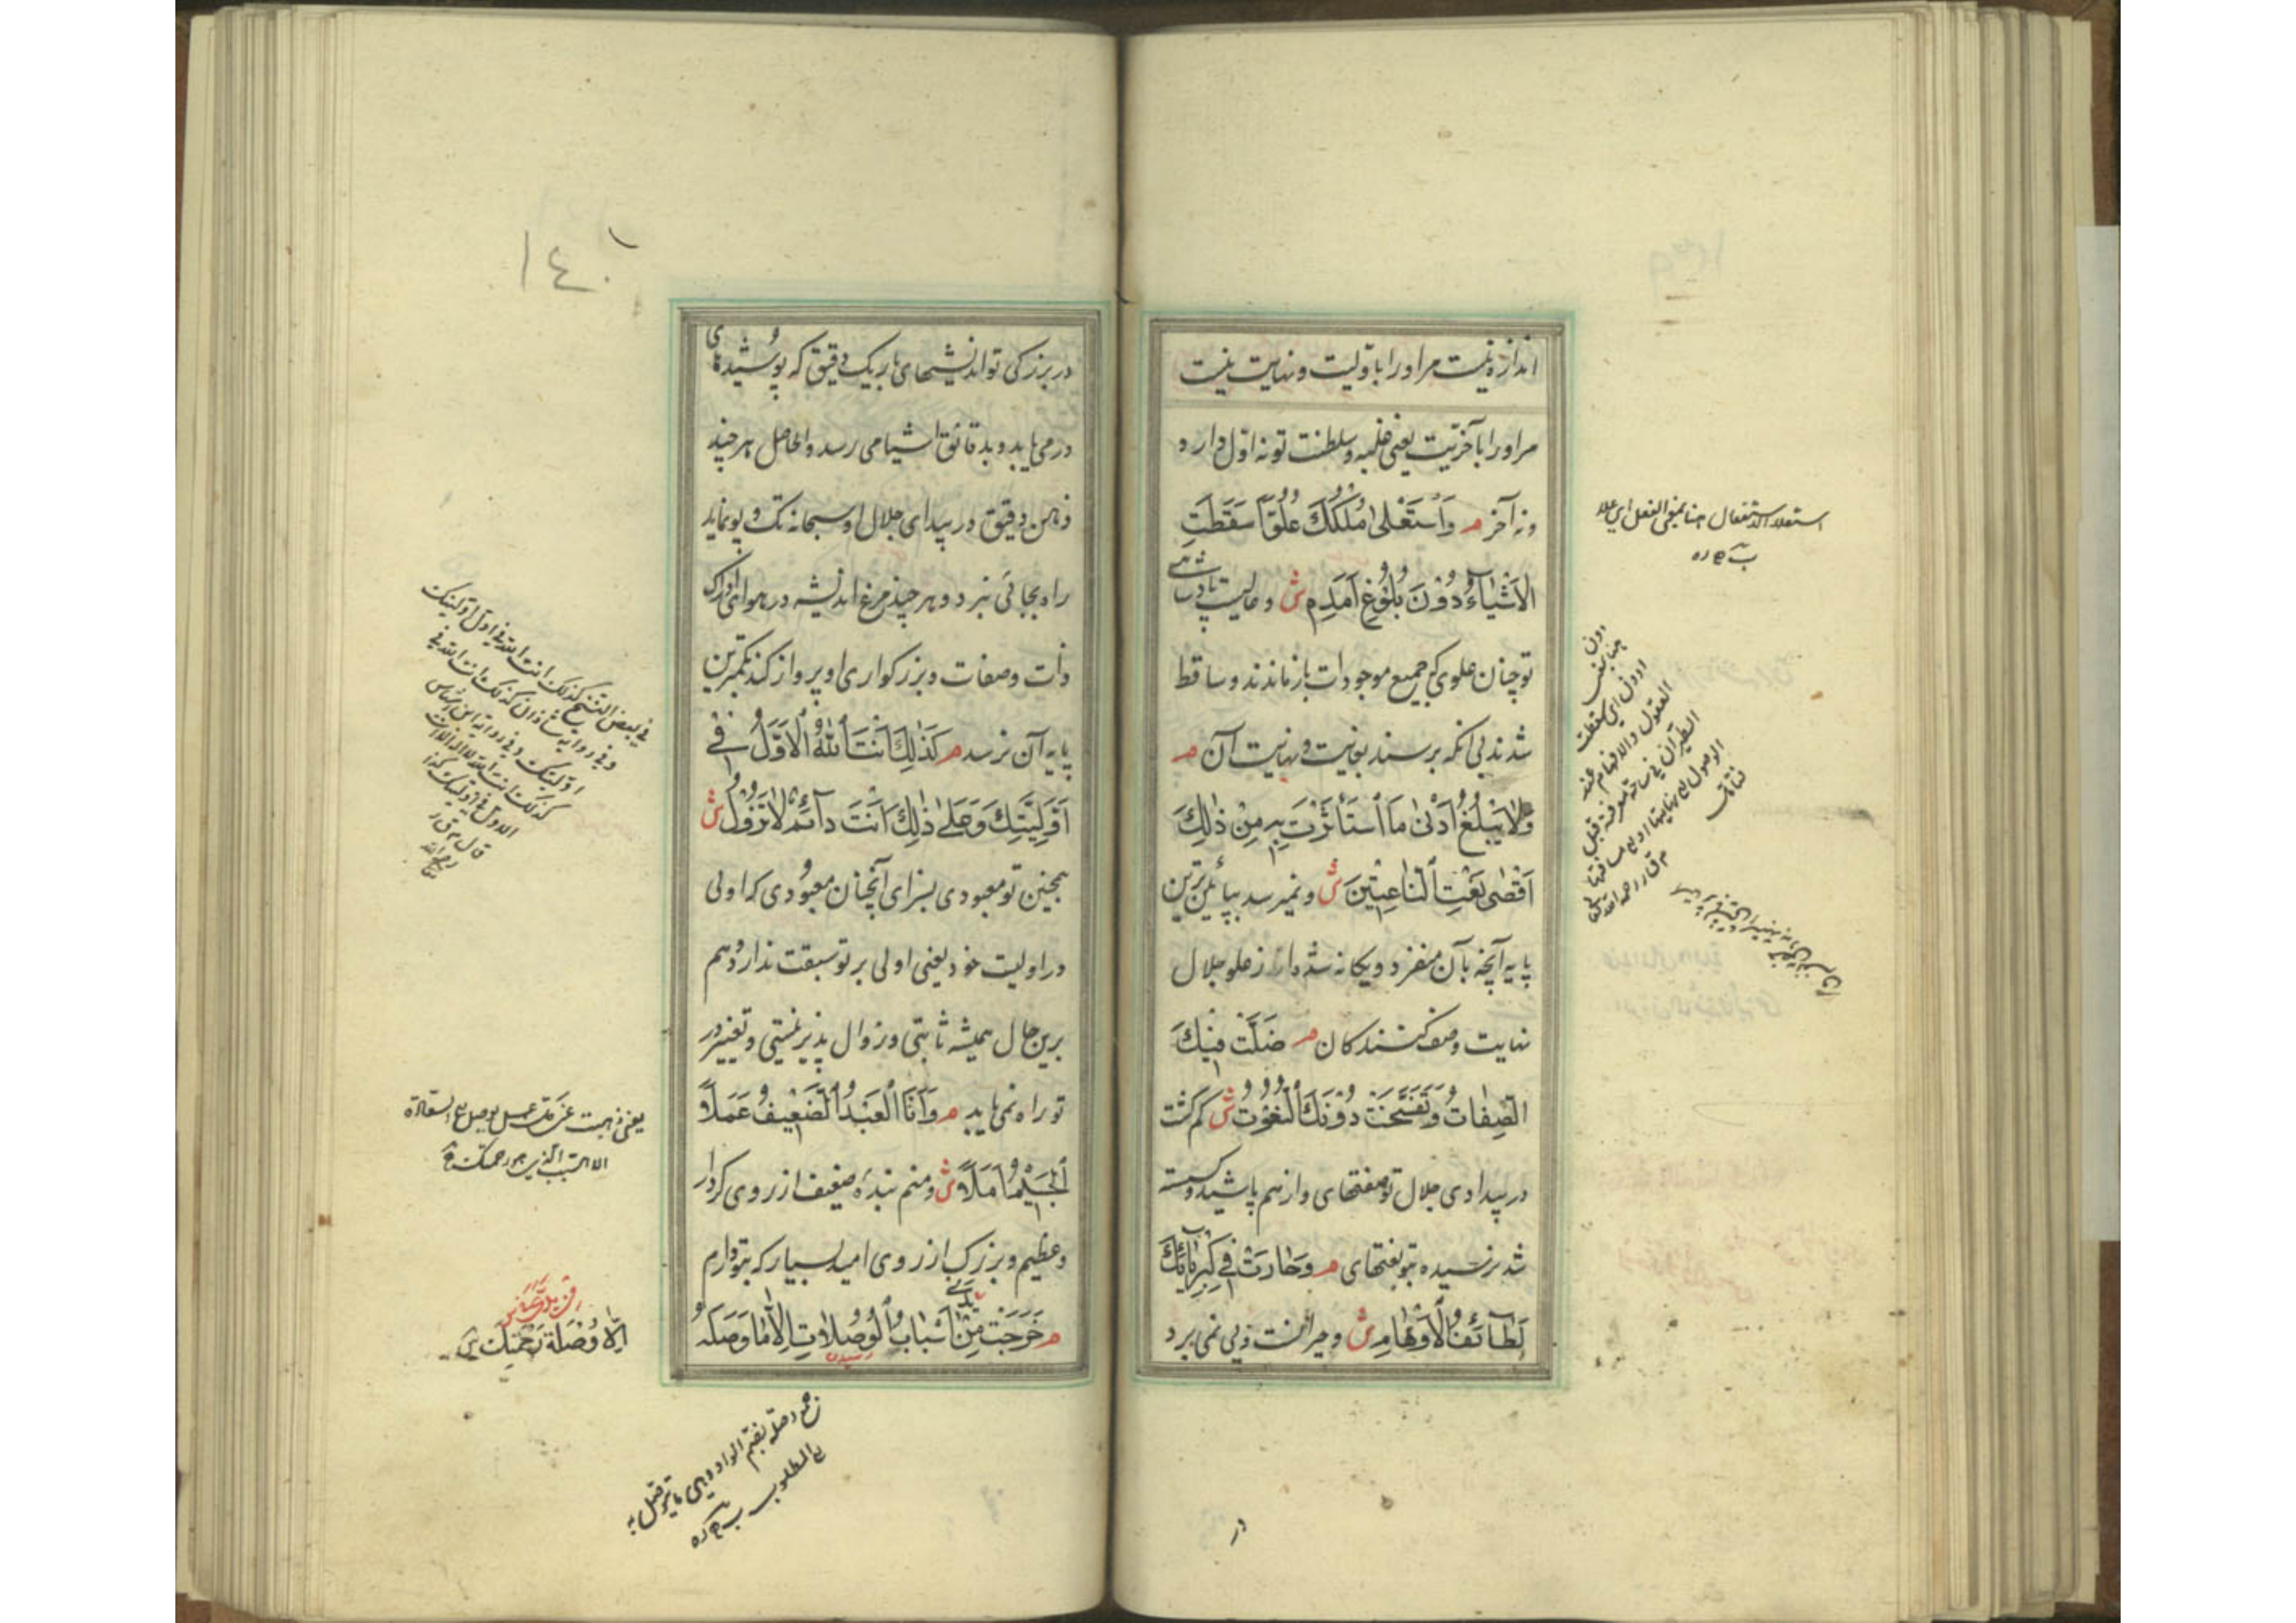 اندازه نیست مر او را باوّلیت و نهایت نیست
مر او را بآخریّت یعنی غلبه و سلطنت تو نه اوّل دارد
و نه آخر م وَاسْتَعْلیٰ مُلْکُکَ عُلُوّاً سَقَطَتِ
الْاَشْیٰآءُ دُوْنَ بُلُوْغِ اَمَدِهِ ش و عالیست پادشاهی
تو چنان علوی که جمیع موجودات باز ماندند و ساقط
شدند بی آنکه برسند بغایت و نهایت آن م
وَلاٰ یَبْلُغُ اَدْنیٰ مَا اسْتَأثَرْتَ بِهِ مِنْ ذٰلِکَ
اَقْصٰی نَعْتِ النّٰاعِتِیْنَ ش و نمیرسد بپائین ترین
پایه آنچه بآن منفرد و یکانه شده از علو جلال
نهایت وصف کنندکان م ضَلَّتْ فِیْکَ
الصِّفٰاتُ وَتَفَسَّخَتْ دُوْنَکَ النُّعُوْتُ ش کم کشت
در بیدادی جلال تو صفتهای و از هم پاشیده و کسسته
شد نرسیده بتو نعتهای م وَحٰارَتْ فِی کِبْرِیٰآئِکَ
لَطٰآئِفُ الْاَوْهٰامِ ش و حیرانست و پی نمی برد
در
استعلاء الاستفعال هنا بمعنی الفعل ای علا
١٤٠
در بزرکی تو اندیشهای باریک دقیق که پوشیدهای
در می یابد و بدقائق اشیا می رسد و الحاصل هر چند
ذهن دقیق در بیدای جلال او سبحانه تک و پو نماید
راه بجائی نبرد و هر چند مرغ اندیشه در هوای ادراک
ذات و صفات و بزرکواری او پرواز کند بکمترین
پایه آن نرسد م کَذٰلِکَ اَنْتَ اللهُ الْاَوَّلُ فِی
اَوَّلِیَّتِکَ وَعَلیٰ ذٰلِکَ اَنْتَ دٰآئِمٌ لاٰ تَزُوْلُ ش
همچنین تو معبودی بسزای آنچنان معبودی که اولی
در اولیت خود یعنی اولی بر تو سبقت ندارد و هم
برین حال همیشه ثابتی و زوال پذیر نیستی و تغییر در
تو راه نمی یابد م وَاَنَا الْعَبْدُ الضَّعِیْفُ عَمَلاً
الْجَسِیْمُ اَمَلاً ش و منم بنده ضعیف از روی کردار
و عظیم و بزرک از روی امید بسیار که بتو دارم
م خَرَجَتْ مِنْ یَدِی اَسْبٰابُ الْوُصُلاٰتِ اِلاّٰ مٰا وَصَلَهُ
فی بعض النسخ کذلک انت الله فی اول اولیتک
اِلاّ وُصْلَةُ رَحْمَتِکَ
جمع وصلة بضم الواو و هی ما یتوصل به
الی المطلوب